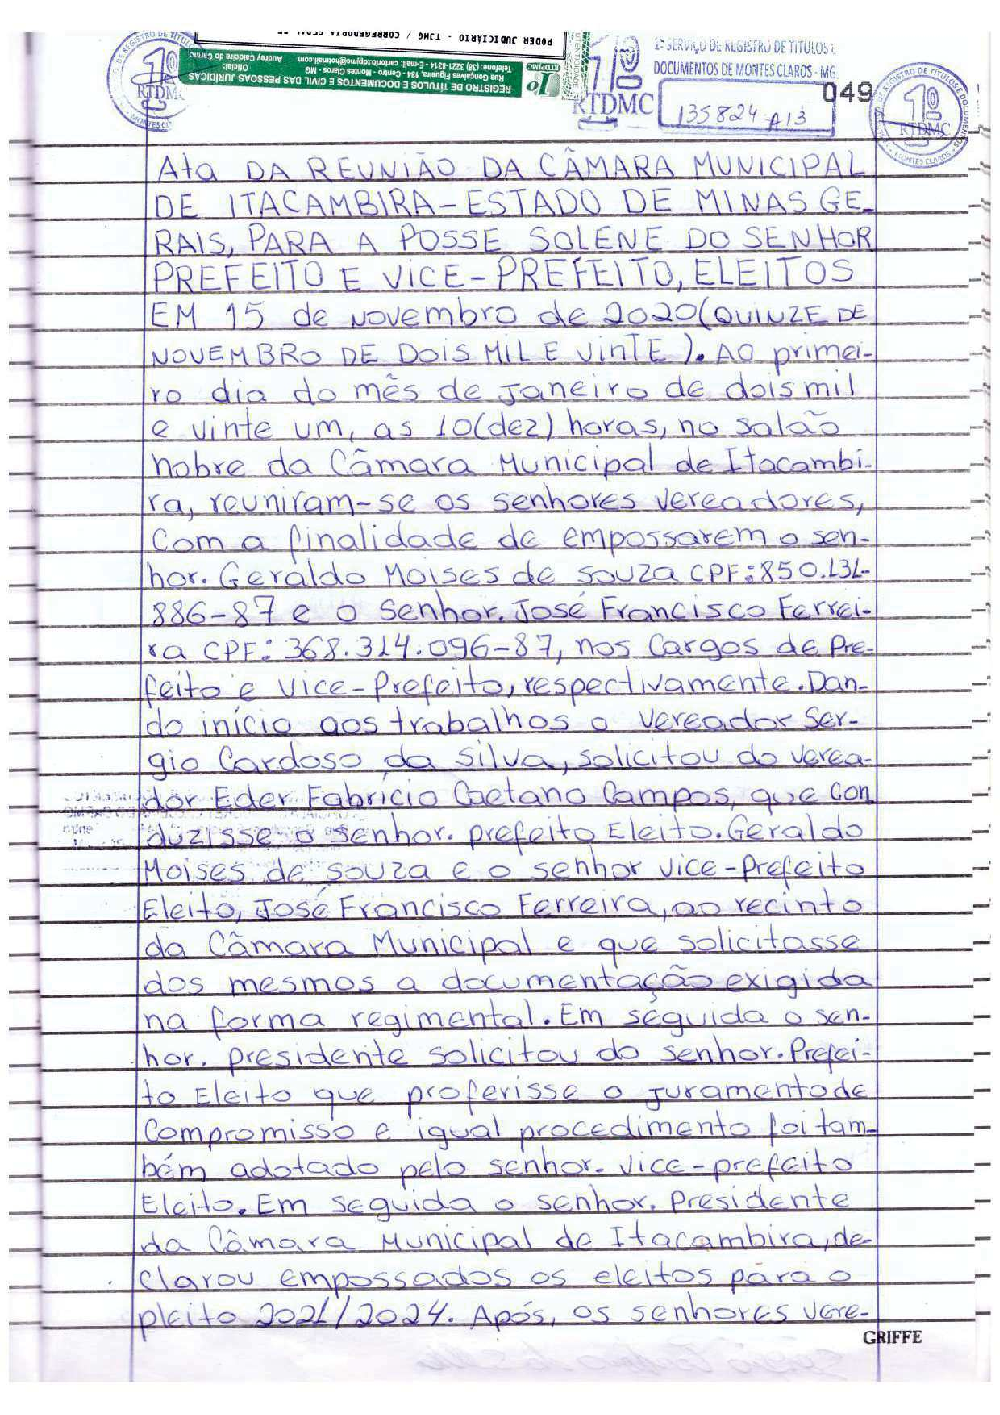 PODER JUDICIÁRIO - TJMG / CORREGEDORIA
REGISTRO DE TÍTULOS E DOCUMENTOS E CIVIL DAS PESSOAS JURÍDICAS
Rua Gonçalves Figueira, 934 - Centro - Montes Claros - MG
Oficial:
1º SERVIÇO DE REGISTRO DE TÍTULOS E
DOCUMENTOS DE MONTES CLAROS - MG
049
RTDMC
RTDMC
135824 A13
RTDMC
Ata DA REUNIÃO DA CÂMARA MUNICIPAL
DE ITACAMBIRA-ESTADO DE MINAS GE-
RAIS, PARA A POSSE SOLENE DO SENHOR
PREFEITO E VICE-PREFEITO, ELEITOS
EM 15 de novembro de 2020 (QUINZE DE
NOVEMBRO DE DOIS MIL E Vinte). Ao primei-
ro dia do mês de janeiro de dois mil
e vinte um, as 10(dez) horas, no salão
nobre da Câmara Municipal de Itacambi-
ra, reuniram-se os senhores vereadores,
Com a finalidade de empossarem o sen-
hor. Geraldo Moises de Souza CPF:850.131-
886-87 e o Senhor. José Francisco Ferrei-
ra CPF: 368.314.096-87, nos Cargos de Pre-
feito e Vice-Prefeito, respectivamente. Dan-
do início aos trabalhos o vereador Ser-
gio Cardoso da Silva, solicitou do verea-
dor Eder Fabricio Caetano Campos, que con
duzisse o senhor. prefeito Eleito. Geraldo
Moises de souza e o senhor vice-Prefeito
Eleito, José Francisco Ferreira, ao recinto
da Câmara Municipal e que solicitasse
dos mesmos a documentação exigida
na forma regimental. Em seguida o sen-
hor. presidente solicitou do senhor. Prefei-
to Eleito que proferisse o juramento de
Compromisso e igual procedimento foi tam-
bém adotado pelo senhor. vice-prefeito
Eleito. Em seguida o senhor. Presidente
da Câmara Municipal de Itacambira, de-
clarou empossados os eleitos para o
pleito 2021/2024. Após, os senhores vere-
GRIFFE